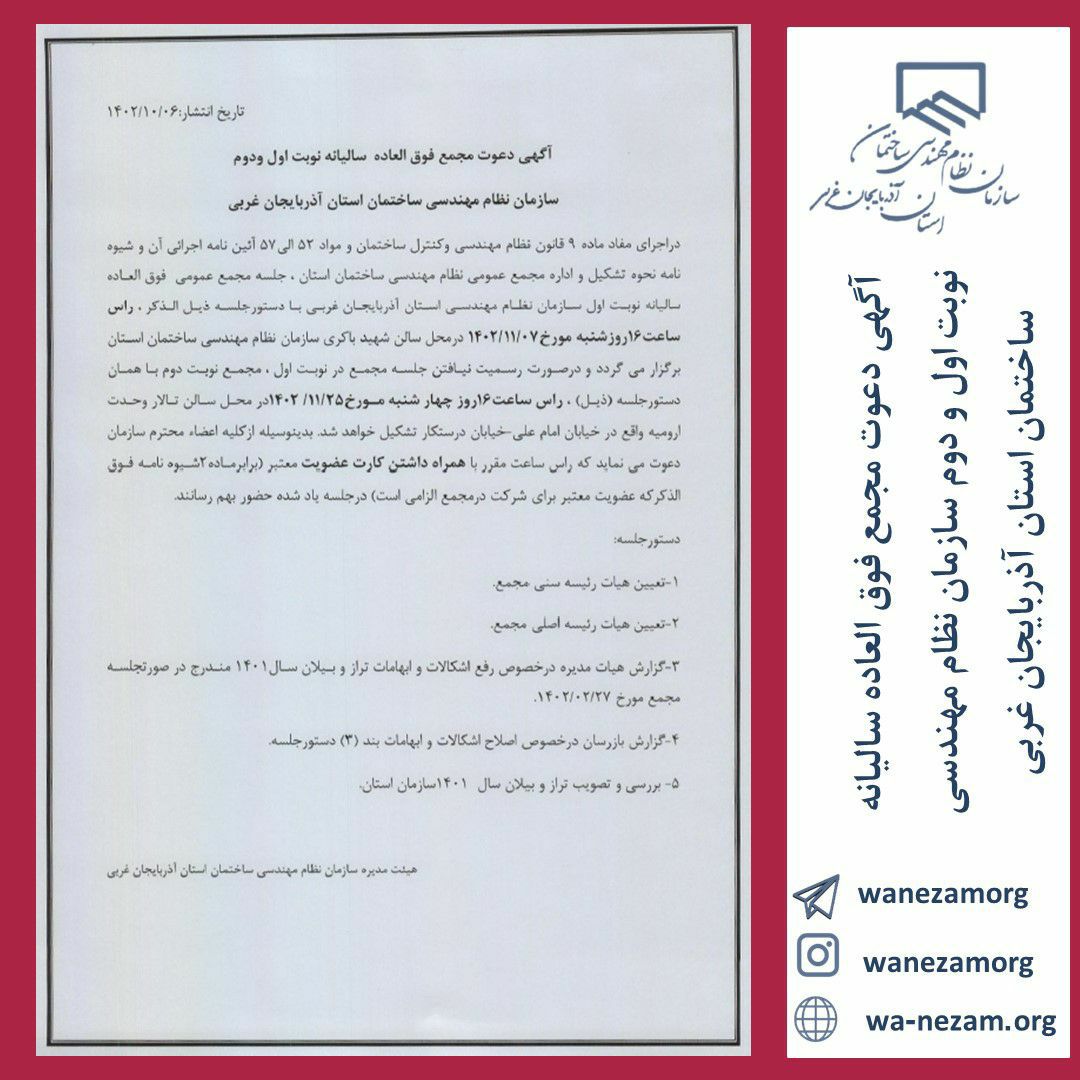 تاریخ انتشار:۱۴۰۲/۱۰/۰۶
آگهی دعوت مجمع فوق العاده سالیانه نوبت اول ودوم
سازمان نظام مهندسی ساختمان استان آذربایجان غربی
دراجرای مفاد ماده ۹ قانون نظام مهندسی وکنترل ساختمان و مواد ۵۲ الی۵۷ آئین نامه اجرائی آن و شیوه
نامه نحوه تشکیل و اداره مجمع عمومی نظام مهندسی ساختمان استان ، جلسه مجمع عمومی فوق العاده
سالیانه نوبت اول سازمان نظام مهندسی استان آذربایجان غربی با دستورجلسه ذیل الذکر ، راس
ساعت۱۶روزشنبه مورخ۱۴۰۲/۱۱/۰۷ درمحل سالن شهید باکری سازمان نظام مهندسی ساختمان استان
برگزار می گردد و درصورت رسمیت نیافتن جلسه مجمع در نوبت اول ، مجمع نوبت دوم با همان
دستورجلسه (ذیل) ، راس ساعت۱۶روز چهار شنبه مورخ۱۴۰۲/۱۱/۲۵در محل سالن تالار وحدت
ارومیه واقع در خیابان امام علی-خیابان درستکار تشکیل خواهد شد. بدینوسیله ازکلیه اعضاء محترم سازمان
دعوت می نماید که راس ساعت مقرر با همراه داشتن کارت عضویت معتبر (برابرماده۲شیوه نامه فوق
الذکرکه عضویت معتبر برای شرکت درمجمع الزامی است) درجلسه یاد شده حضور بهم رسانند.
دستورجلسه:
۱-تعیین هیات رئیسه سنی مجمع.
۲-تعیین هیات رئیسه اصلی مجمع.
۳-گزارش هیات مدیره درخصوص رفع اشکالات و ابهامات تراز و بیلان سال۱۴۰۱ مندرج در صورتجلسه
مجمع مورخ ۱۴۰۲/۰۲/۲۷.
۴-گزارش بازرسان درخصوص اصلاح اشکالات و ابهامات بند (۳) دستورجلسه.
۵- بررسی و تصویب تراز و بیلان سال ۱۴۰۱سازمان استان.
هیئت مدیره سازمان نظام مهندسی ساختمان استان آذربایجان غربی
سازمان نظام مهندسی ساختمان
استان آذربایجان غربی
آگهی دعوت مجمع فوق العاده سالیانه
نوبت اول و دوم سازمان نظام مهندسی
ساختمان استان آذربایجان غربی
wanezamorg
wanezamorg
wa-nezam.org